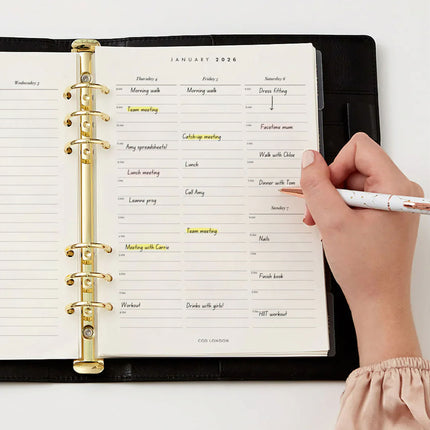 JANUARY 2026
Wednesday 3
Thursday 4
Friday 5
Saturday 6
Morning walk
Team meeting
Amy spreadsheets!
Lunch meeting
Leanne prog
Meeting with Carrie
Workout
Morning walk
Catch-up meeting
Lunch
Call Amy
Team meeting
Drinks with girls!
Dress fitting
Facetime mum
Walk with Chloe
Dinner with Tom
Sunday 7
Nails
Finish book
HIIT workout
CGD LONDON